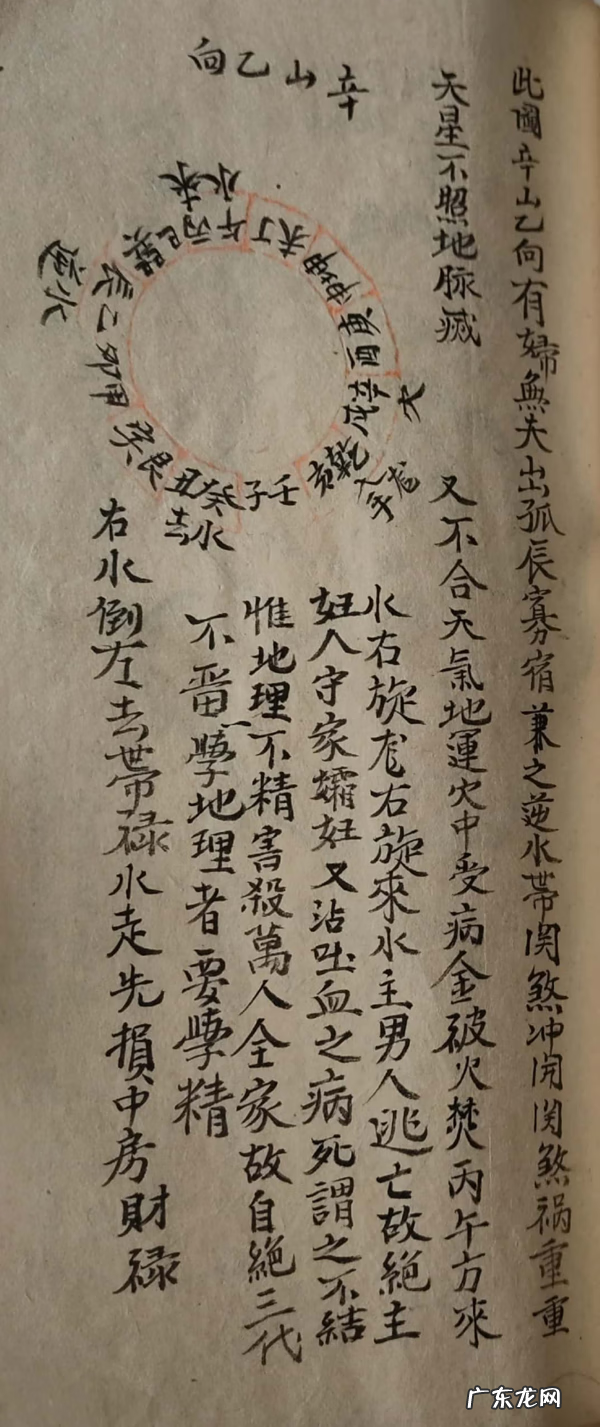 此圖辛山乙向有婦無夫出孤辰寡宿兼之逆水帶関煞冲開関煞祸重重
天星不照地脉滅
又不合天氣地運火中受病金破火焚丙午方來
水右旋龙右旋來水主男人逃亡故絕主
妇人守家孀妇又沾吐血之病死謂之不結
惟地理不精害殺萬人全家故自絕三代
不啚學地理者要學精
右水倒左去帶禄水走先損中房財禄
辛山乙向
水來
巽巳丙午丁未坤申庚酉辛戌乾亥壬子癸丑艮寅甲卯乙辰
逆水
去水
广东龙网